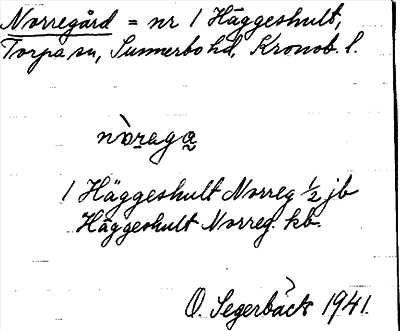 Norregård = nr 1 Häggeshult,
Torpa sn, Sunnerbo hd, Kronob. l.
nòraga
1 Häggeshult Norreg 1/2 jb
Häggeshult Norreg. kb.
O. Segerbäck 1941.